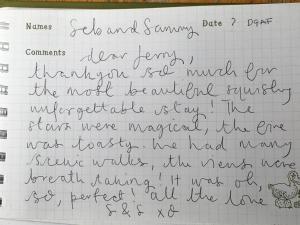 Names Seb and Sammy Date ? DGAF
Comments dear Jerry,
thankyou so much for
the most beautiful squishy
unforgettable stay! The
stars were magical, the fire
was toasty. We had many
scenic walks, the views were
breath taking! It was oh,
so, perfect! all the love
S & S xo